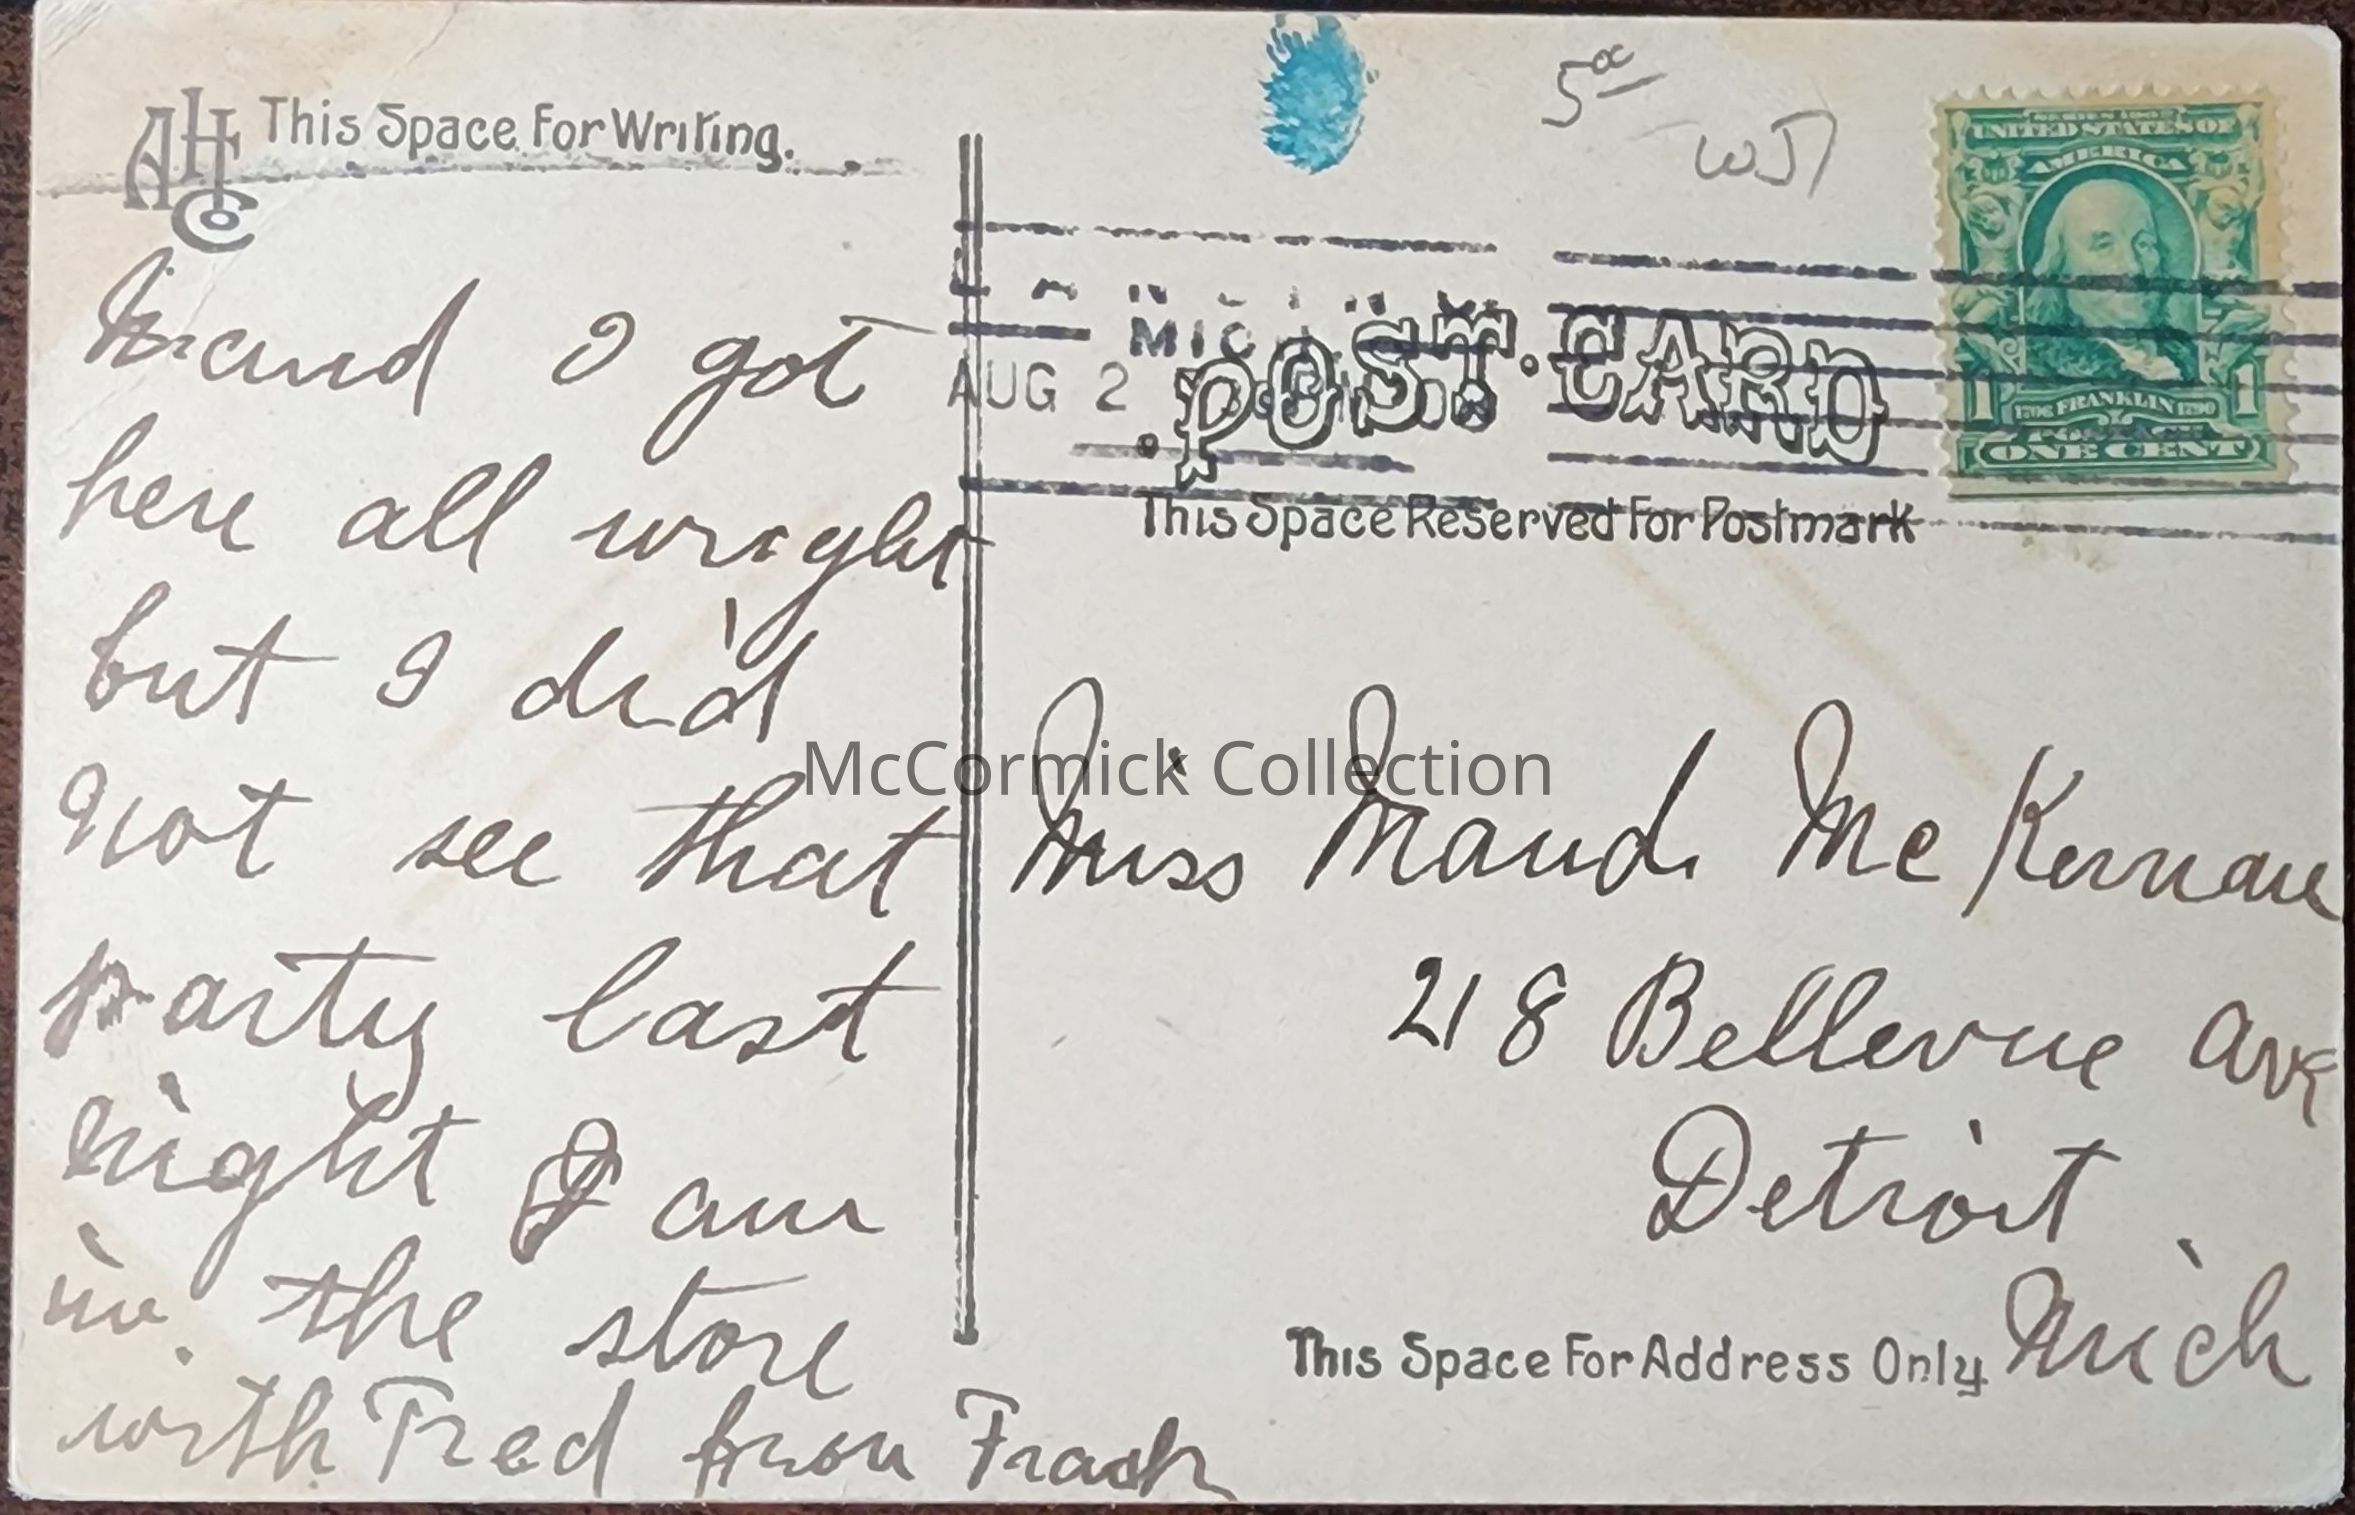 AHCo This Space For Writing.
Maud I got
here all wright
but I did
not see that
party last
night I am
in the store
with Fred from Frank
5
WJ
UNITED STATES OF
AMERICA
1 1706 FRANKLIN 1790 1
POSTAGE
ONE CENT
MICH
AUG 2
POST CARD
This Space Reserved For Postmark
McCormick Collection
Miss Maud McKernan
218 Bellevue Ave
Detroit
Mich
This Space For Address Only